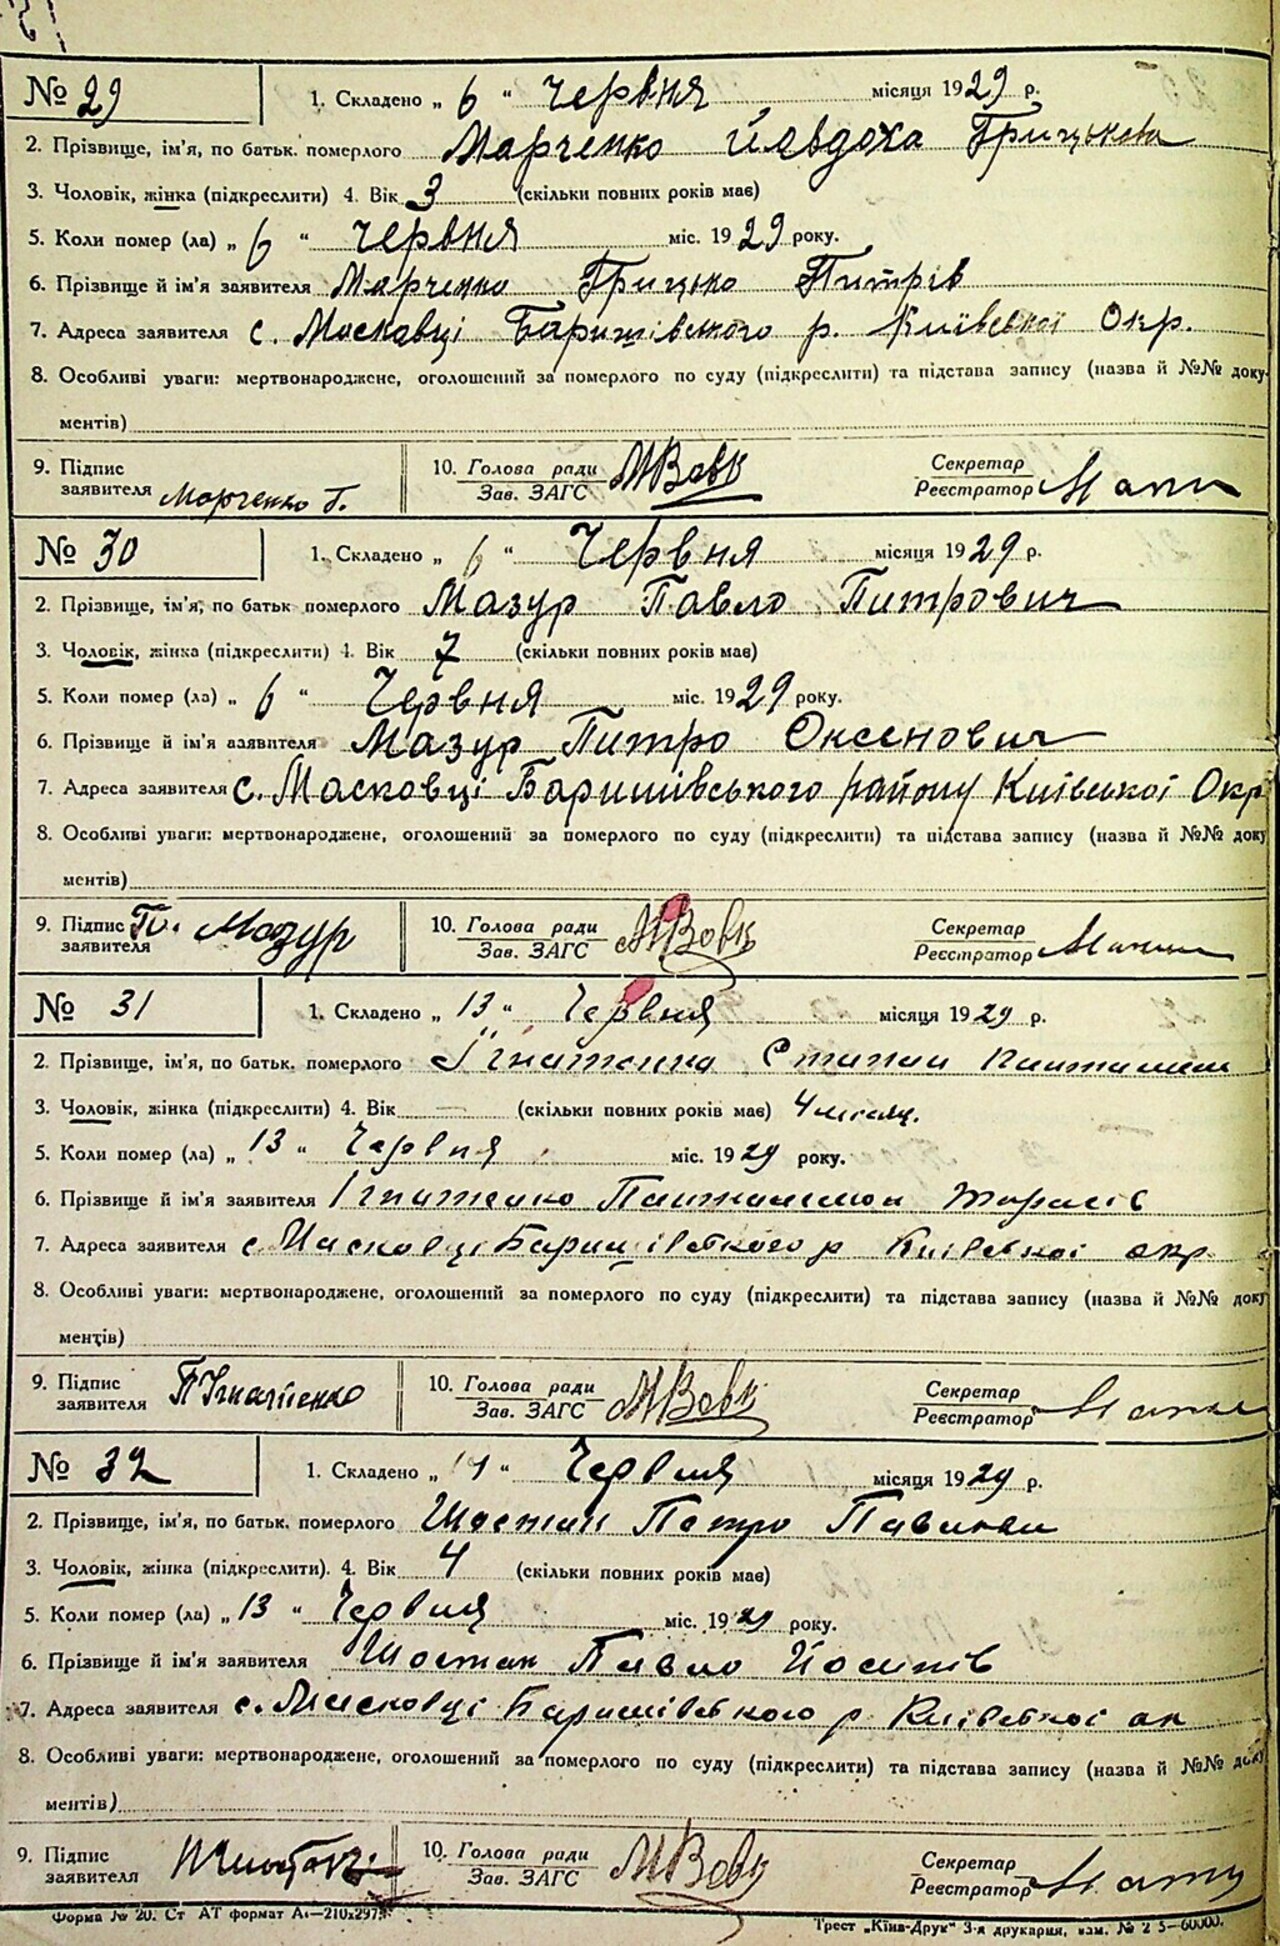 № 29 1. Складено „ 6 “ Червня місяця 1929 р.
2. Прізвище, ім'я, по батьк. померлого Марченко Йовдоха Грицькова
3. Чоловік, жінка (підкреслити) 4. Вік 3 (скільки повних років має)
5. Коли помер (ла) „ 6 “ червня міс. 1929 року.
6. Прізвище й ім'я заявителя Марченко Грицько Питрів
7. Адреса заявителя с. Масковці Баришівського р. Київської Окр.
8. Особливі уваги: мертвонароджене, оголошений за померлого по суду (підкреслити) та підстава запису (назва й №№ доку-
ментів)
9. Підпис 10. Голова ради МВовк Секретар
заявителя Марченко Г. Зав. ЗАГС Реєстратор
№ 30 1. Складено „ 6 “ Червня місяця 1929 р.
2. Прізвище, ім'я, по батьк померлого Мазур Павло Питрович
3. Чоловік, жінка (підкреслити) 4. Вік 7 (скільки повних років має)
5. Коли помер (ла) „ 6 “ Червня міс. 1929 року.
6. Прізвище й ім'я заявителя Мазур Питро Оксенович
7. Адреса заявителя с. Масковці Баришівського району Київської Окр
8. Особливі уваги: мертвонароджене, оголошений за померлого по суду (підкреслити) та підстава запису (назва й №№ доку
ментів)
9. Підпис Пи. Мазур 10. Голова ради МВовк Секретар
заявителя Зав. ЗАГС Реєстратор
№ 31 1. Складено „ 13 “ Червня місяця 1929 р.
2. Прізвище, ім'я, по батьк. померлого Ігнатенко Степан
3. Чоловік, жінка (підкреслити) 4. Вік — (скільки повних років має) 4 місяц.
5. Коли помер (ла) „ 13 “ Червня міс. 1929 року.
6. Прізвище й ім'я заявителя Ігнатенко Пантилимон Тарасів
7. Адреса заявителя с. Масковці Баришівського р Київської окр
8. Особливі уваги: мертвонароджене, оголошений за померлого по суду (підкреслити) та підстава запису (назва й №№ доку
ментів)
9. Підпис П Ігнатенко 10. Голова ради МВовк Секретар
заявителя Зав. ЗАГС Реєстратор
№ 32 1. Складено „ 14 “ Червня місяця 1929 р.
2. Прізвище, ім'я, по батьк. померлого Шостак Петро Павлович
3. Чоловік, жінка (підкреслити). 4. Вік 4 (скільки повних років має)
5. Коли помер (ла) „ 13 “ Червня міс. 1929 року.
6. Прізвище й ім'я заявителя Шостак Павло Йосипів
7. Адреса заявителя с. Масковці Баришівського р Київської ок
8. Особливі уваги: мертвонароджене, оголошений за померлого по суду (підкреслити) та підстава запису (назва й №№ доку
ментів)
9. Підпис 10. Голова ради МВовк Секретар
заявителя Зав. ЗАГС Реєстратор
Форма № 20. Ст АТ формат А₄—210х297.
Трест „Київ-Друк“ 3-я друкарня, зам. № 2 5—60000.